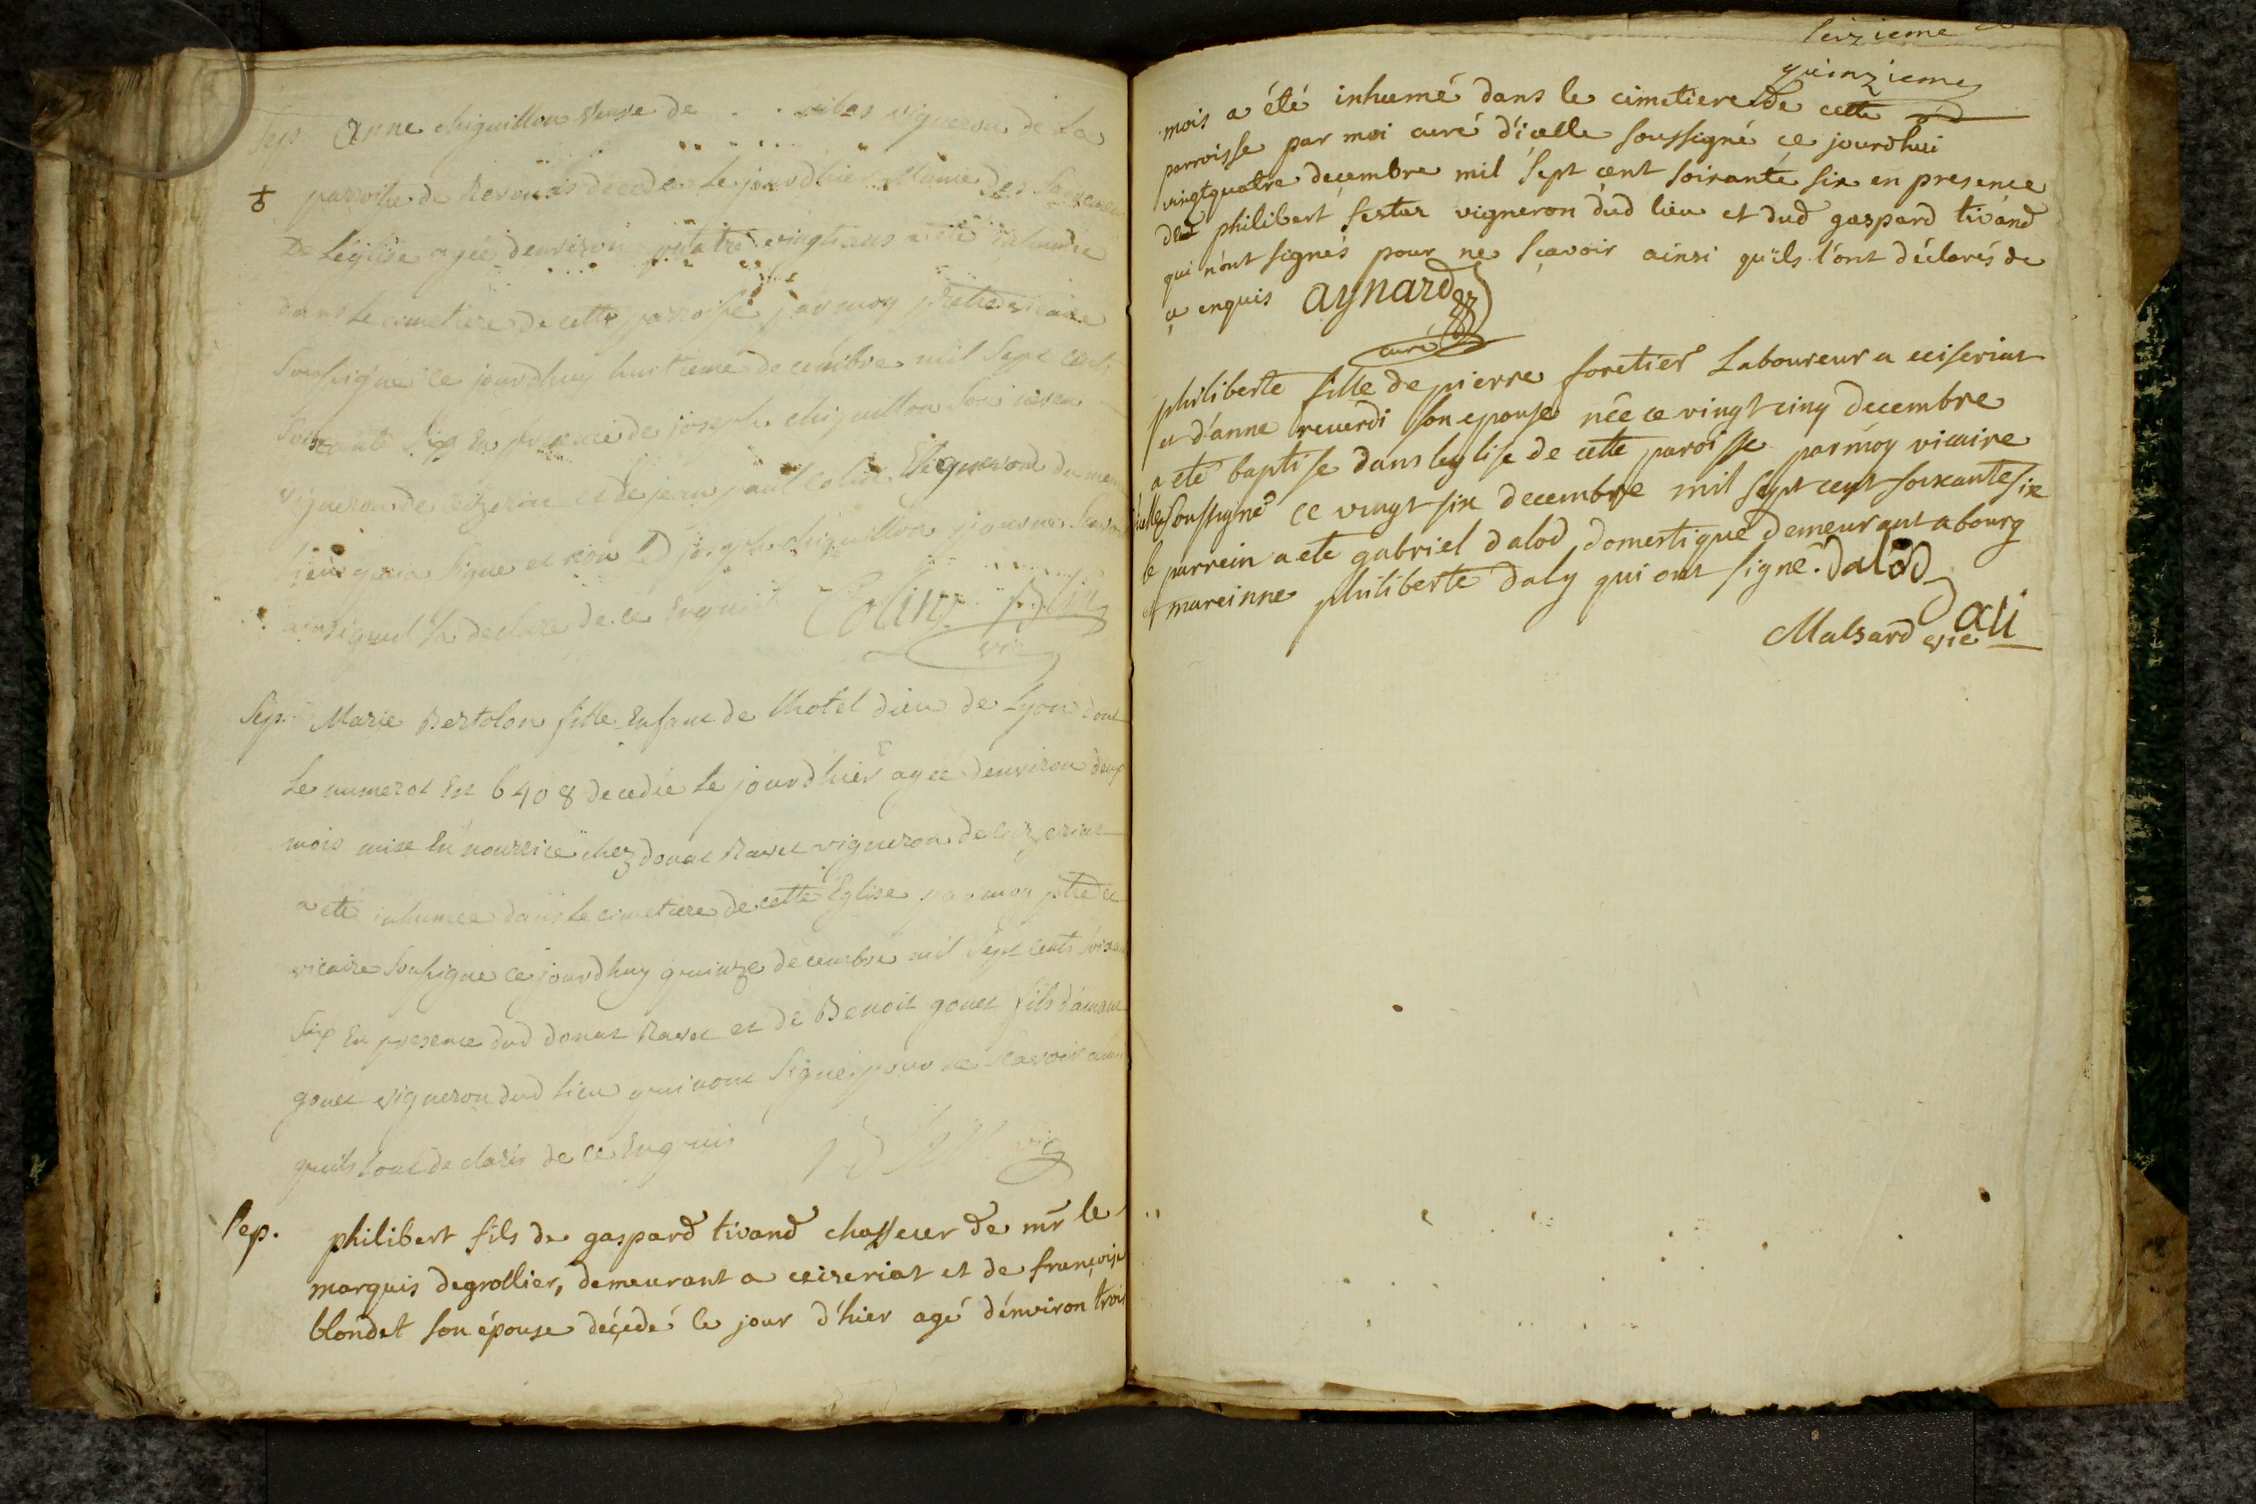 Sep. Anne chiguillon veuve de vigneron de la
parroisse de Revonas décédée le jourdhier des Sacremens
De Léglise agée denviron quatre vingt ans a été inhumée
dans le cimetiere de cette parroisse par moy vicaire
Soussigné ce jourdhuy huitieme decembre mil Sept cent
Soixante Six En presence de joseph chiguillon Son
vigneron de Ceyzeriat et de jean paul Colin vigneron du meme
lieu qui a signé et non led joseph chiguillon pour ne Scavoir
ainsi quil la declaré de ce Enquis Colin
vic
Sep. Marie Bertolon fille Enfant de lhotel dieu de Lyon dont
Le numerot Est 6408 decedée le jourdhier agée denviron deux
mois mise En nourrice chez donat Ravet vigneron de Ceyzeriat
a été inhumée dans le cimetiere de cette Eglise par moy ptre et
vicaire Soussigné ce jourdhuy quinze decembre mil Sept cents soixante
Six En presence dud donat Ravet et de Benoit gouet fils damant
gouet vigneron dud lieu qui nont Signés pour ne Scavoir ainsi
quils lont declarés de ce Enquis vic
Sep. philibert fils de gaspard tivand chasseur de mr le
marquis degrollier, demeurant a ceizeriat et de françoise
blondet son épouse décédé le jour d'hier agé d'environ trois
seizieme
quinzieme
mois a été inhumé dans le cimetiere de cette
parroisse par moi curé d'icelle soussigné ce jourdhui
vingtquatre decembre mil sept cent soixante six en presence
de philibert vigneron dud lieu et dud gaspard tivand
qui n'ont signés pour ne sçavoir ainsi qu'ils l'ont déclarés de
a enquis aynard
curé
philiberte fille de pierre foretier Laboureur a ceiseriat
et d'anne reverdi son epouse née ce vingt cinq decembre
a eté baptisé dans leglise de cette paroisse par moy vicaire
soussigné ce vingt six decembre mil sept cent soixante six
le parrein a ete gabriel dalod domestique demeurant a bourg
et mareinne philiberte daly qui ont signé. Dalod
Dali
Malsard vic